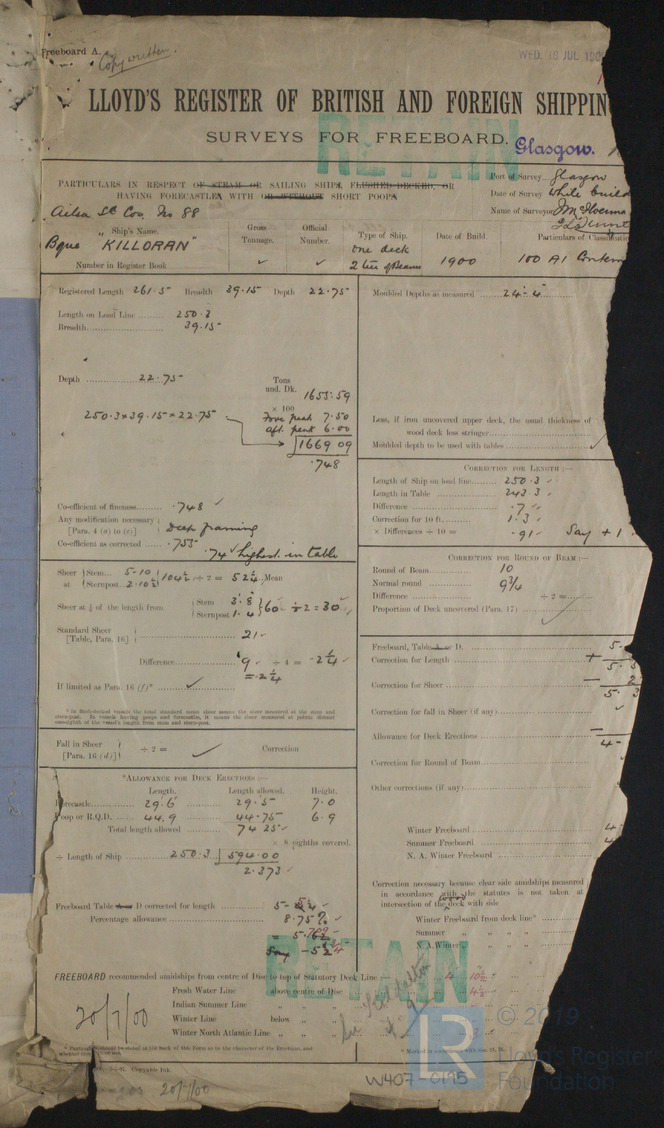 Freeboard A.
Copy written.
WED. 18 JUL 190
LLOYD'S REGISTER OF BRITISH AND FOREIGN SHIPPIN
RETAIN
SURVEYS FOR FREEBOARD.
Glasgow.
PARTICULARS IN RESPECT OF STEAM OR SAILING SHIPS, FLUSHED DECKED, OR
HAVING FORECASTLES WITH OR WITHOUT SHORT POOPS
Port of Survey Glasgow
Date of Survey While build
Name of Surveyor
Ailsa SB Cos. No 88
Ship's Name.
Bque "KILLORAN"
Number in Register Book
Gross Tonnage.
Official Number.
Type of Ship.
one deck
2 tier of Beams
Date of Build.
1900
Particulars of Classificatio
100 A1 Contem
Registered Length 261.5 Breadth 39.15 Depth 22.75
Length on Load Line 250.3
Breadth 39.15
Depth 22.75
Tons und. Dk. 1655.59
× 100
Fore peak 7.50
Aft. peak 6.00
250.3 × 39.15 × 22.75
1669 09
.748
Co-efficient of fineness .748
Any modification necessary [Para. 4 (a) to (e)] Deep framing
Co-efficient as corrected .755
.74 highest in table
Sheer at Stem 5-10
Sternpost 2.10½
104½ ÷ 2 = 52¼ Mean
Sheer at ⅛ of the length from Stem 3.8
Sternpost 1.4
60 ÷ 2 = 30
Standard Sheer [Table, Para. 16] 21
Difference 9 ÷ 4 = -2¼
= -2¼
If limited as Para. 16 (f)*
* In flush-decked vessels the total standard mean sheer means the sheer measured at the stem and
stern-post. In vessels having poops and forecastles, it means the sheer measured at points distant
one-eighth of the vessel's length from stem and stern-post.
Fall in Sheer [Para. 16 (d)] ÷ 2 = Correction
*ALLOWANCE FOR DECK ERECTIONS :—
Length. Length allowed. Height.
Forecastle 29.6 29.5 7.0
Poop or R.Q.D. 44.9 44.75 6.9
Total length allowed 74 25
× 8 eighths covered.
÷ Length of Ship 250.3 594.00
2.373
Freeboard Table A or D corrected for length
Percentage allowance 8.75%
Say -5½
Moulded Depths as measured 24-4
Less, if iron uncovered upper deck, the usual thickness of
wood deck less stringer
Moulded depth to be used with tables
CORRECTION FOR LENGTH :—
Length of Ship on load line 250.3
Length in Table 243.3
Difference 7
Correction for 10 ft. 1.3
× Differences ÷ 10 = .91 Say + 1
CORRECTION FOR ROUND OF BEAM :—
Round of Beam 10
Normal round 9¾
Difference ÷ 2 =
Proportion of Deck uncovered (Para. 17)
Freeboard, Table A or D. 5-
Correction for Length +
Correction for Sheer —
Correction for fall in Sheer (if any)
Allowance for Deck Erections —
Correction for Round of Beam
Other corrections (if any)
Winter Freeboard
Summer Freeboard
N. A. Winter Freeboard
Correction necessary because clear side amidships measured
in accordance with the statutes is not taken at
intersection of the wood deck with side
Winter Freeboard from deck line*
Summer " " "
N.A. Winter " " "
RETAIN
FREEBOARD recommended amidships from centre of Disc to top of Statutory Deck Line
Fresh Water Line above centre of Disc
Indian Summer Line " "
Winter Line below "
Winter North Atlantic Line " "
20/7/00
20/7/00
W407-0195
LR
© 2019
Lloyd's Register
Foundation